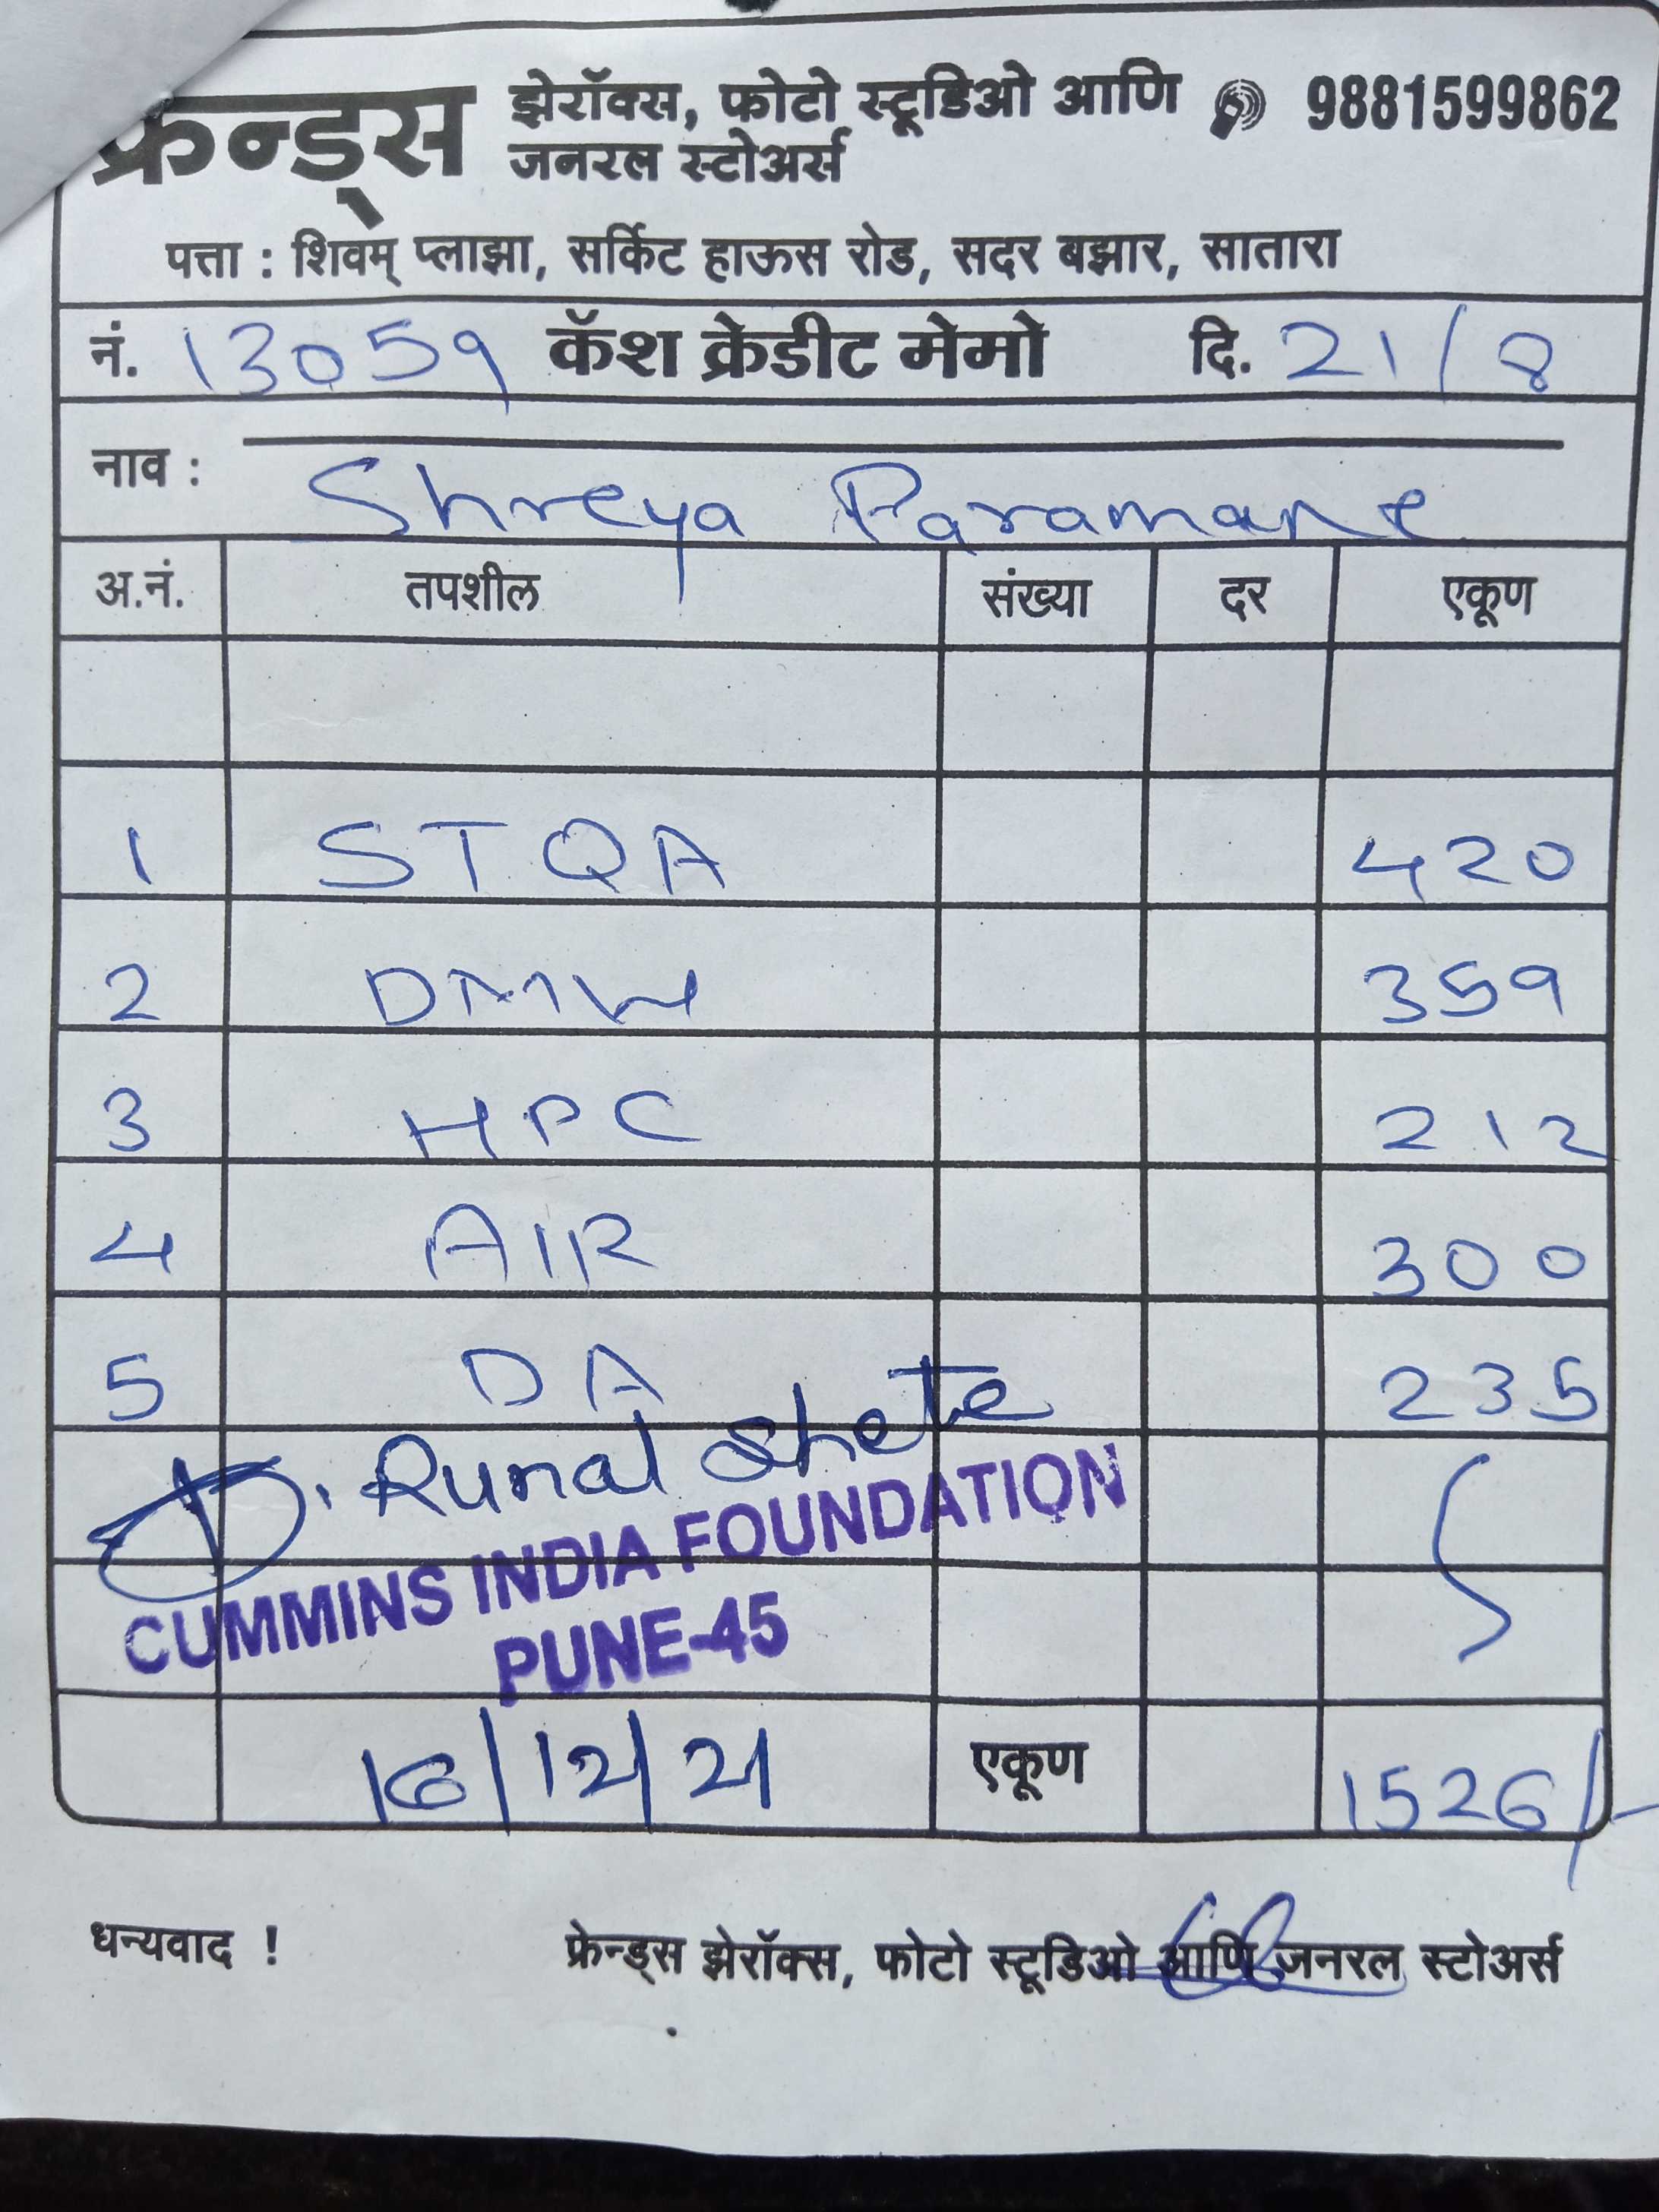 फ्रेन्ड्स झेरॉक्स, फोटो स्टूडिओ आणि 9881599862
जनरल स्टोअर्स
पत्ता : शिवम् प्लाझा, सर्किट हाऊस रोड, सदर बझार, सातारा
नं. 13059 कॅश क्रेडीट मेमो दि. 21/8
नाव : Shreya Paramane
अ.नं. तपशील संख्या दर एकूण
1 STQA 420
2 DMW 359
3 HPC 212
4 AIR 300
5 DA 235
Runal Shete
CUMMINS INDIA FOUNDATION
PUNE-45
16/12/21 एकूण 1526/-
धन्यवाद ! फ्रेन्ड्स झेरॉक्स, फोटो स्टूडिओ आणि जनरल स्टोअर्स